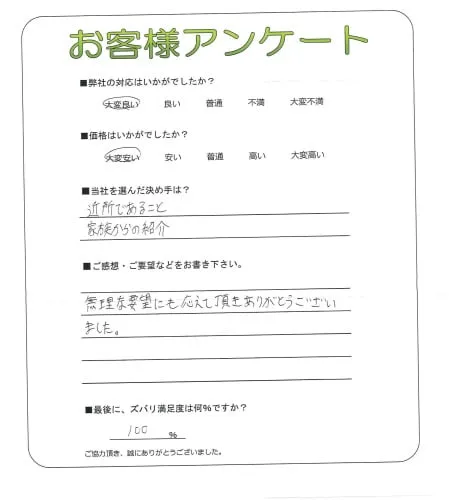 お客様アンケート
■弊社の対応はいかがでしたか？
大変良い 良い 普通 不満 大変不満
■価格はいかがでしたか？
大変安い 安い 普通 高い 大変高い
■当社を選んだ決め手は？
近所であること
家族からの紹介
■ご感想・ご要望などをお書き下さい。
無理な要望にも応えて頂きありがとうござい
ました。
■最後に、ズバリ満足度は何%ですか？
100 %
ご協力頂き、誠にありがとうございました。